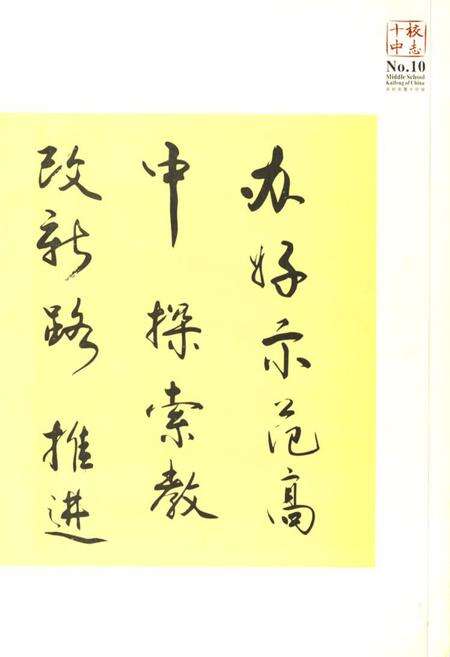 十中校志
No.10
Middle School
Kaifeng of China
办好示范高
中 探索教
改新路 推进